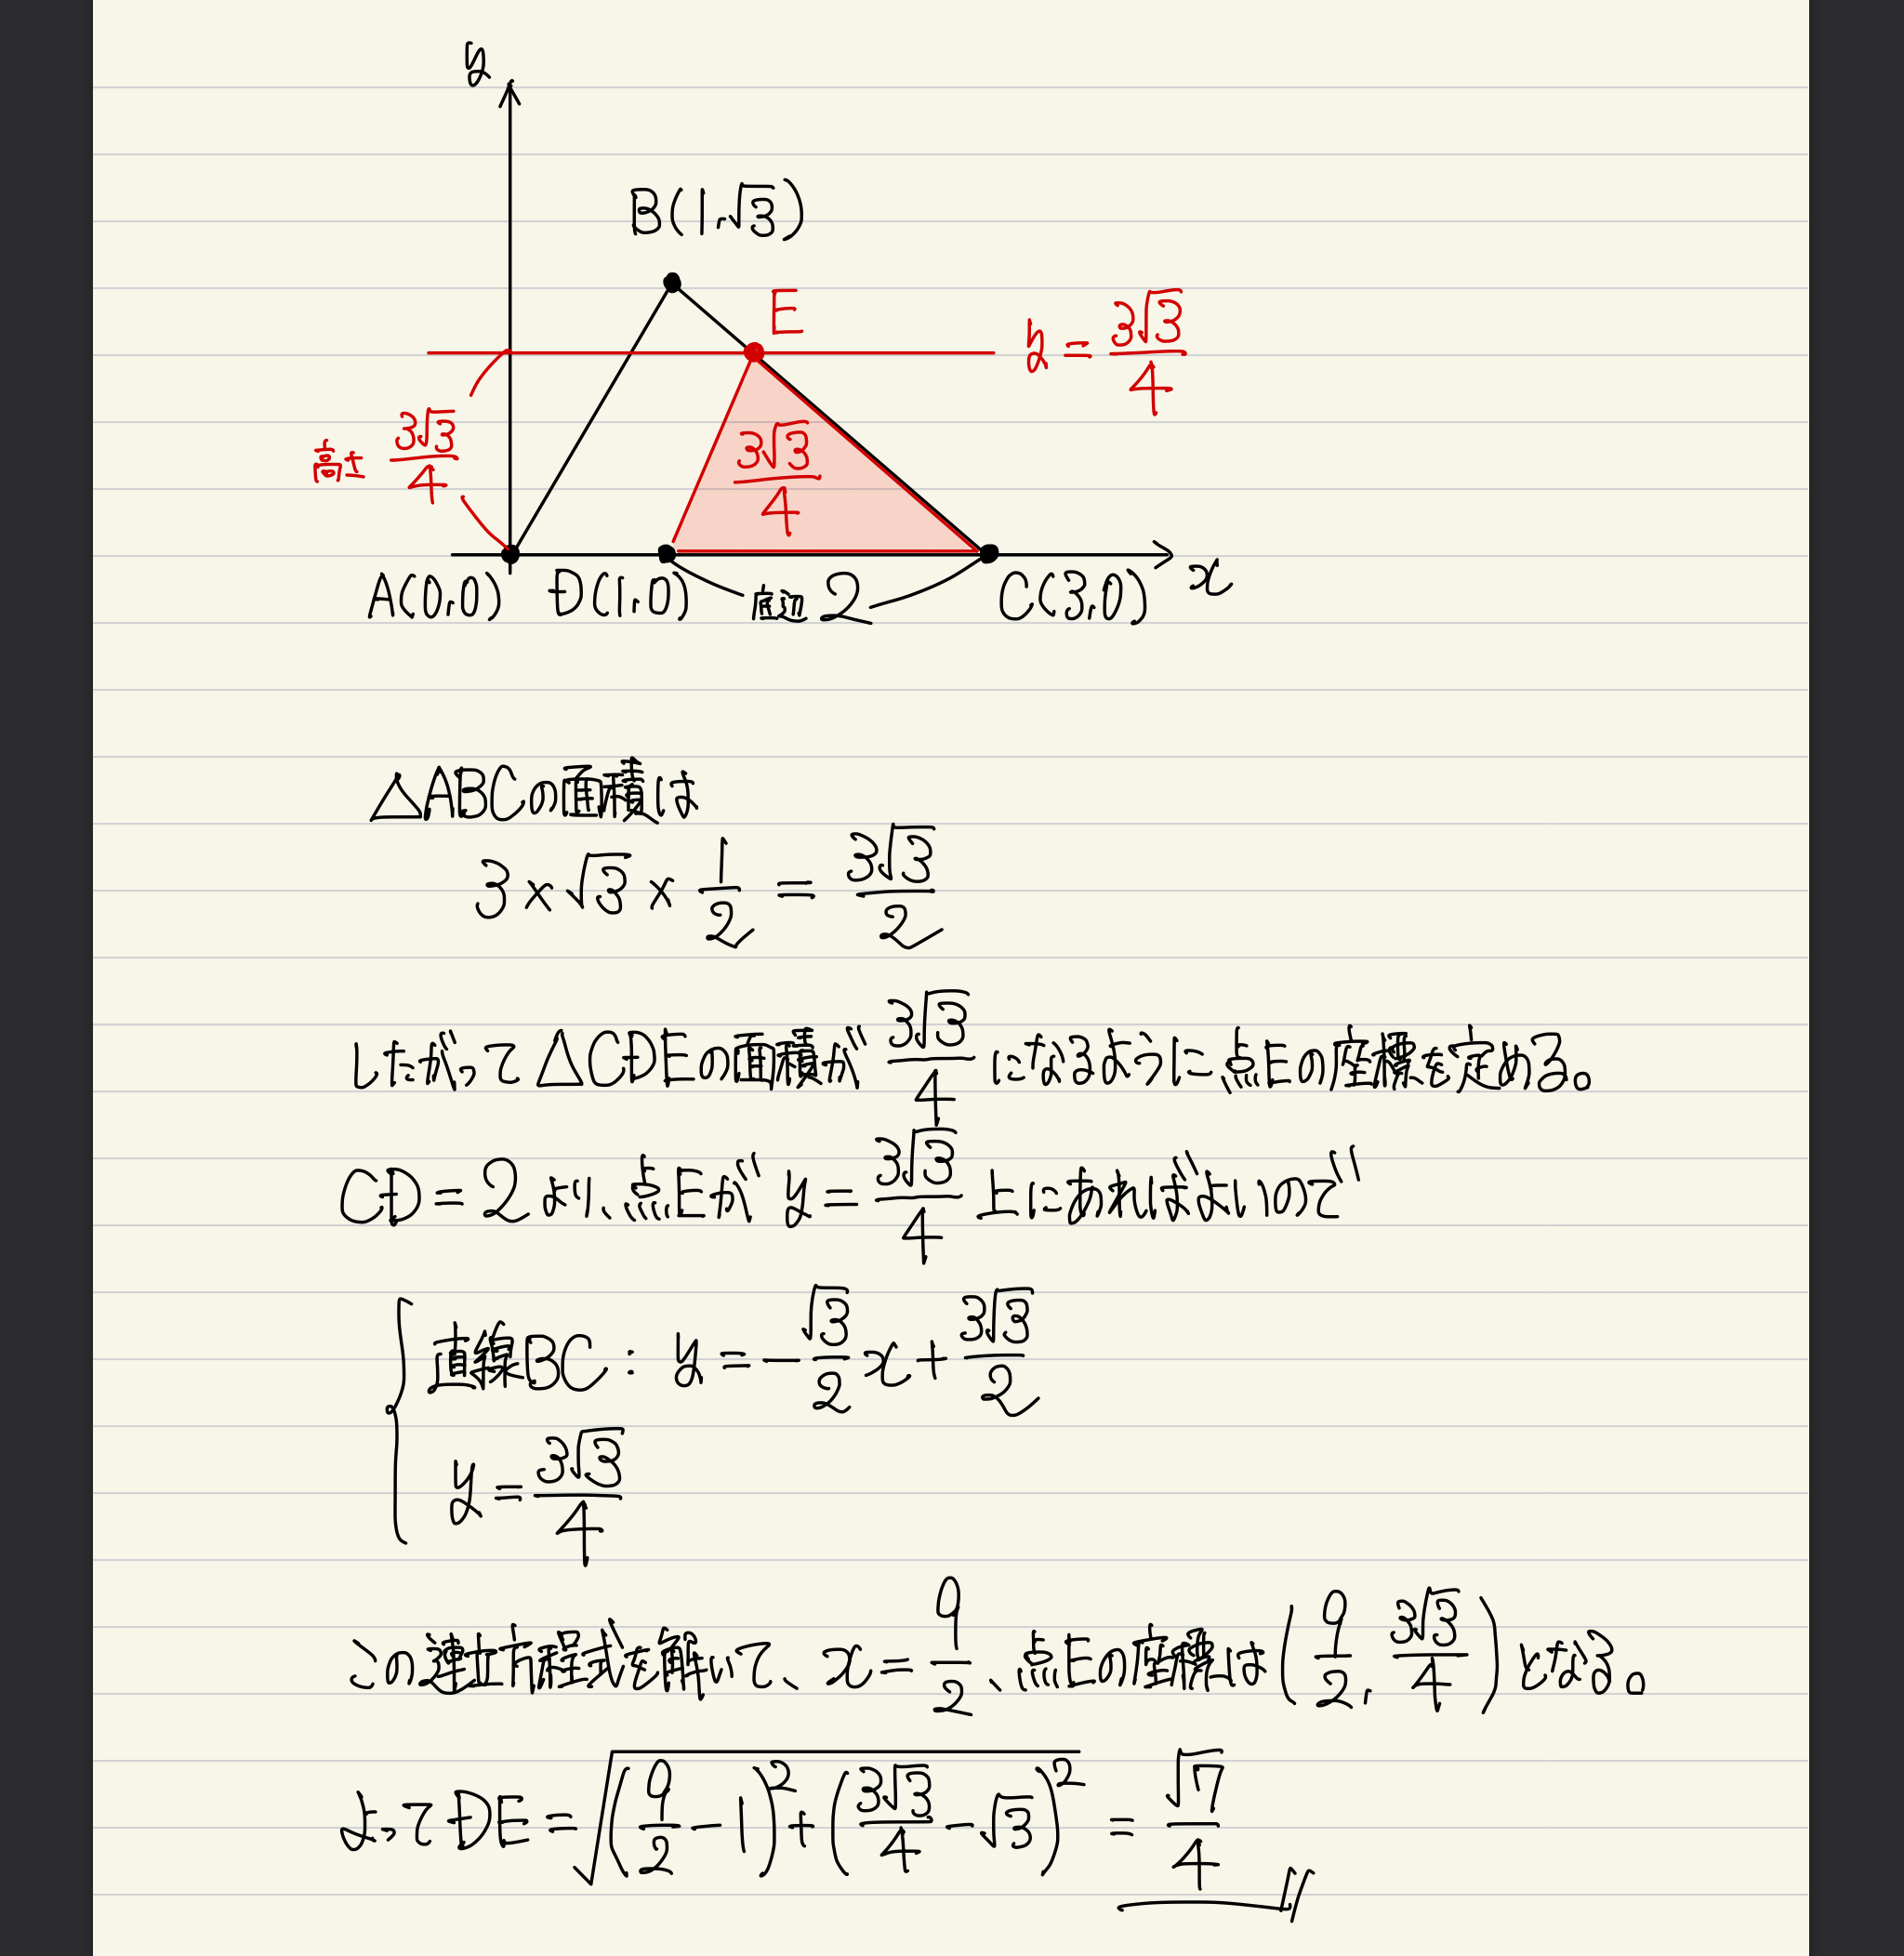 y
B(1,√3)
E
y = 3√3/4
高さ 3√3/4
3√3/4
A(0,0) D(1,0) 底辺 2 C(3,0) x
△ABCの面積は
3×√3×1/2 = 3√3/2
したがって△CDEの面積が 3√3/4 になるように点Eの座標を定める。
CD=2より、点Eが y=3√3/4 上にあればよいので
直線BC: y=-√3/2 x+3√3/2
y=3√3/4
この連立方程式を解いて、x=9/2、点Eの座標は(9/2, 3√3/4)となる。
よってDE=√((9/2-1)²+(3√3/4-√3)²) = √7/4